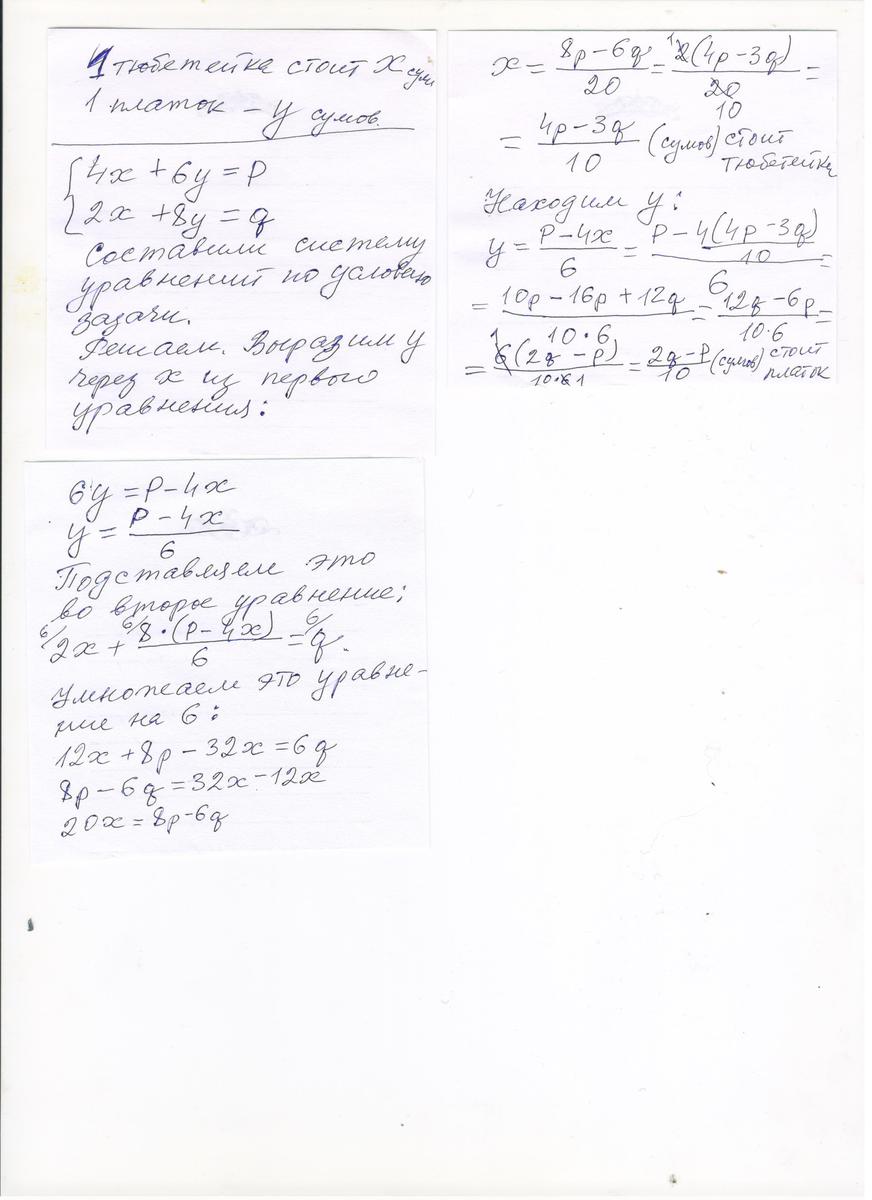 1 тюбетейка стоит x сум
1 платок – y сумов.
{ 4x + 6y = p
2x + 8y = q
Составили систему
уравнений по условию
задачи.
Решаем. Выразим y
через x из первого
уравнения:
6y = p – 4x
y = (p – 4x)/6
Подставляем это
во второе уравнение;
6/ 2x + 6/ 8·(p – 4x)/6 = 6/ q.
Умножаем это уравне-
ние на 6:
12x + 8p – 32x = 6q
8p – 6q = 32x – 12x
20x = 8p – 6q
x = (8p – 6q)/20 = 1 2(4p – 3q)/20 10 =
= (4p – 3q)/10 (сумов) стоит
тюбетейка
Находим y:
y = (p – 4x)/6 = (p – 4(4p – 3q)/10)/6 =
= (10p – 16p + 12q)/(10·6) = (12q – 6p)/(10·6) =
= 1 6(2q – p)/(10·6 1) = (2q – p)/10 (сумов) стоит
платок